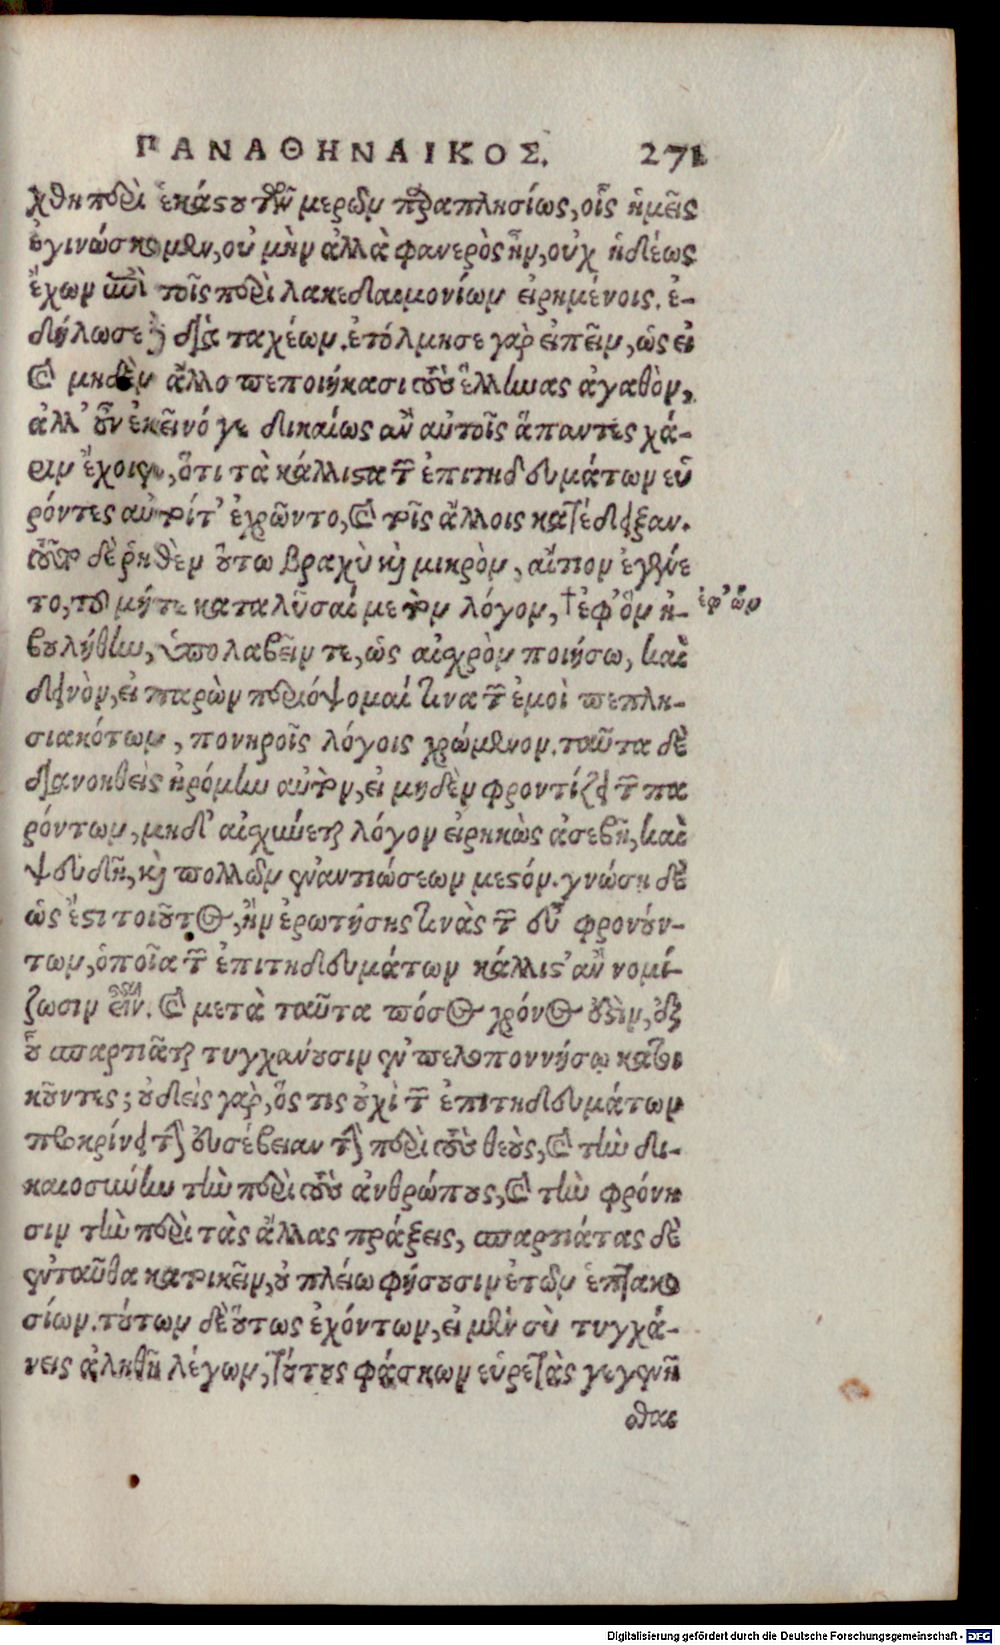 ΠΑΝΑΘΗΝΑΙΚΟΣ. 271
χθη περὶ ἑκάστου τῶν μερῶν παραπλησίως, οἷς ἡμεῖς
ἐγινώσκομεν, οὐ μὴν ἀλλὰ φανερὸς ἦν, οὐχ ἡδέως
ἔχων ἐπὶ τοῖς περὶ λακεδαιμονίων εἰρημένοις. ἐ-
δήλωσε δὲ διὰ ταχέων. ἐτόλμησε γὰρ εἰπεῖν, ὡς εἰ
καὶ μηδὲν ἄλλο πεποιήκασι τοὺς ἕλληνας ἀγαθὸν,
ἀλλ' οὖν ἐκεῖνό γε δικαίως ἂν αὐτοῖς ἅπαντες χά-
ριν ἔχοιεν, ὅτι τὰ κάλλιστα τῶν ἐπιτηδευμάτων εὑ
ρόντες αὐτοί τ' ἐχρῶντο, καὶ τοῖς ἄλλοις κατέδειξαν.
τοῦτο δὲ ῥηθὲν οὕτω βραχὺ καὶ μικρὸν, αἴτιον ἐγένε
το, τοῦ μήτε καταλῦσαί με τὸν λόγον, †ἐφ' ὃν ἠ-
ἐφ' ὧν
βουλήθην, ὑπολαβεῖν τε, ὡς αἰσχρὸν ποιήσω, καὶ
δεινὸν, εἰ παρὼν περιόψομαί τινα τῶν ἐμοὶ πεπλη-
σιακότων, πονηροῖς λόγοις χρώμενον. ταῦτα δὲ
διανοηθεὶς ἠρόμην αὐτὸν, εἰ μηδὲν φροντίζει τῶν πα
ρόντων, μηδ' αἰσχύνεται λόγον εἰρηκὼς ἀσεβῆ, καὶ
ψευδῆ, καὶ πολλῶν ἐναντιώσεων μεστόν. γνώσῃ δὲ
ὡς ἔστι τοιοῦτος, ἢν ἐρωτήσῃς τινὰς τῶν εὖ φρονούν-
των, ὁποῖα τῶν ἐπιτηδευμάτων κάλλιστ' ἂν νομί-
ζωσιν εἶναι. καὶ μετὰ ταῦτα πόσος χρόνος ἐστὶν, ἐξ
οὗ σπαρτιᾶται τυγχάνουσιν ἐν πελοποννήσῳ κατοι
κοῦντες; οὐδεὶς γὰρ, ὅς τις οὐχὶ τῶν ἐπιτηδευμάτων
προκρίνει τὴν εὐσέβειαν τὴν περὶ τοὺς θεοὺς, καὶ τὴν δι-
καιοσύνην τὴν περὶ τοὺς ἀνθρώπους, καὶ τὴν φρόνη
σιν τὴν περὶ τὰς ἄλλας πράξεις, σπαρτιάτας δὲ
ἐνταῦθα κατοικεῖν, οὐ πλείω φήσουσιν ἐτῶν ἑπτακο
σίων. τούτων δὲ οὕτως ἐχόντων, εἰ μὲν σὺ τυγχά-
νεις ἀληθῆ λέγων, τούτους φάσκων εὑρετὰς γεγενῆ
σθαι
Digitalisierung gefördert durch die Deutsche Forschungsgemeinschaft - DFG